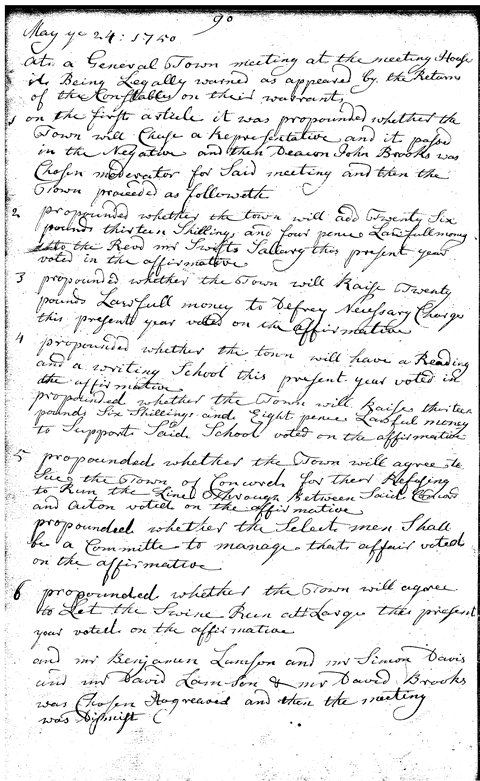 90
May ye 24: 1750
at a General Town meeting at the meeting House
it Being Legally warned as appeared by the Return
of the Constables on their warrant
1 on the first article it was propounded whether the
Town will Chuse a Representative and it passd
in the Negative and then Deacon John Brooks was
Chosen moderator for Said meeting and then the
Town proceeded as followeth
2 propounded whether the town will add Twenty Six
pounds thirteen Shillings and four pence Lawfull money
to the Revd mr Swifts Sallery this present year
voted in the affirmative
3 propounded whether the Town will Raise Twenty
pounds Lawfull money to Defrey Nessary Charges
this present year voted on the affirmative
4 propounded whether the town will have a Reading
and a writing School this present year voted in
the affirmative
propounded whether the Town will Raise thirteen
pounds Six Shillings and Eight pence Lawful money
to Support Said School voted on the affirmative
5 propounded whether the Town will agree to
Sue the Town of Concord for their Refusing
to Run the Line Through Between Said Concord
and Acton voted on the affirmative
propounded whether the Select men Shall
be a Committe to manage that affair voted
on the affirmative
6 propounded whether the Town will agree
to Let the Swine Run att Large this present
year voted on the affirmative
and mr Benjamen Lamson and mr Simon Davis
and mr David Lamson & mr David Brooks
was Chosen Hogreaves and then the meeting
was Dismist